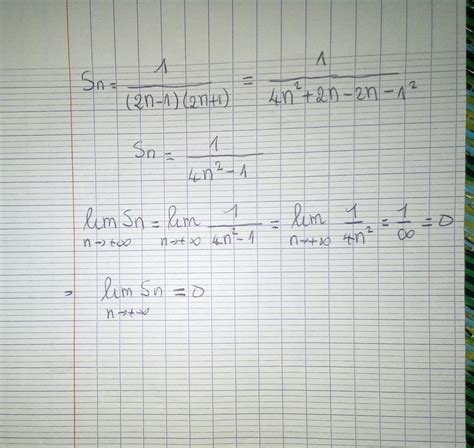 Sn = 1/((2n-1)(2n+1)) = 1/(4n²+2n-2n-1²)
Sn = 1/(4n²-1)
lim Sn = lim 1/(4n²-1) = lim 1/(4n²) = 1/∞ = 0
n→+∞ n→+∞ n→+∞
⇒ lim Sn = 0
n→+∞